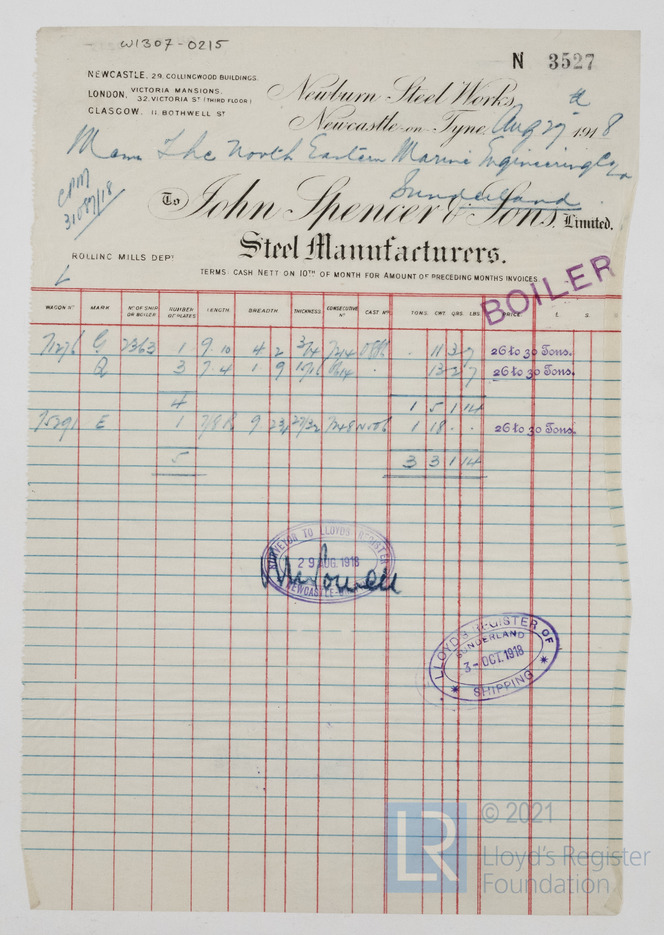 W1307-0215
N 3527
NEWCASTLE, 29, COLLINGWOOD BUILDINGS.
LONDON, VICTORIA MANSIONS, 32, VICTORIA ST (THIRD FLOOR)
GLASGOW, 11 BOTHWELL ST
Newburn Steel Works,
Newcastle-on-Tyne, Aug 29th 1918
The North Eastern Marine Engineering Co
Sunderland
To John Spencer & Sons, Limited.
Steel Manufacturers.
ROLLING MILLS DEPT
TERMS: CASH NETT ON 10TH OF MONTH FOR AMOUNT OF PRECEDING MONTHS INVOICES
BOILER
WAGON Nº MARK Nº OF SHIP OR BOILER NUMBER OF PLATES LENGTH. BREADTH THICKNESS CONSECUTIVE Nº CAST Nº TONS. CWT. QRS. LBS. PRICE £. S.
G 2363 1 9.10 4 2 3/4 . 11 3 7 26 to 30 Tons.
Q 3 7.4 1 9 13 2 7 26 to 30 Tons.
4 1 5 1 14
E 1 9 27/32 1 18 . . 26 to 30 Tons.
5 3 3 1 14
SURVEYOR TO LLOYDS REGISTER
29 AUG. 1918
LLOYD'S REGISTER OF
SUNDERLAND
3-OCT.1918
SHIPPING
LR
© 2021
Lloyd's Register
Foundation